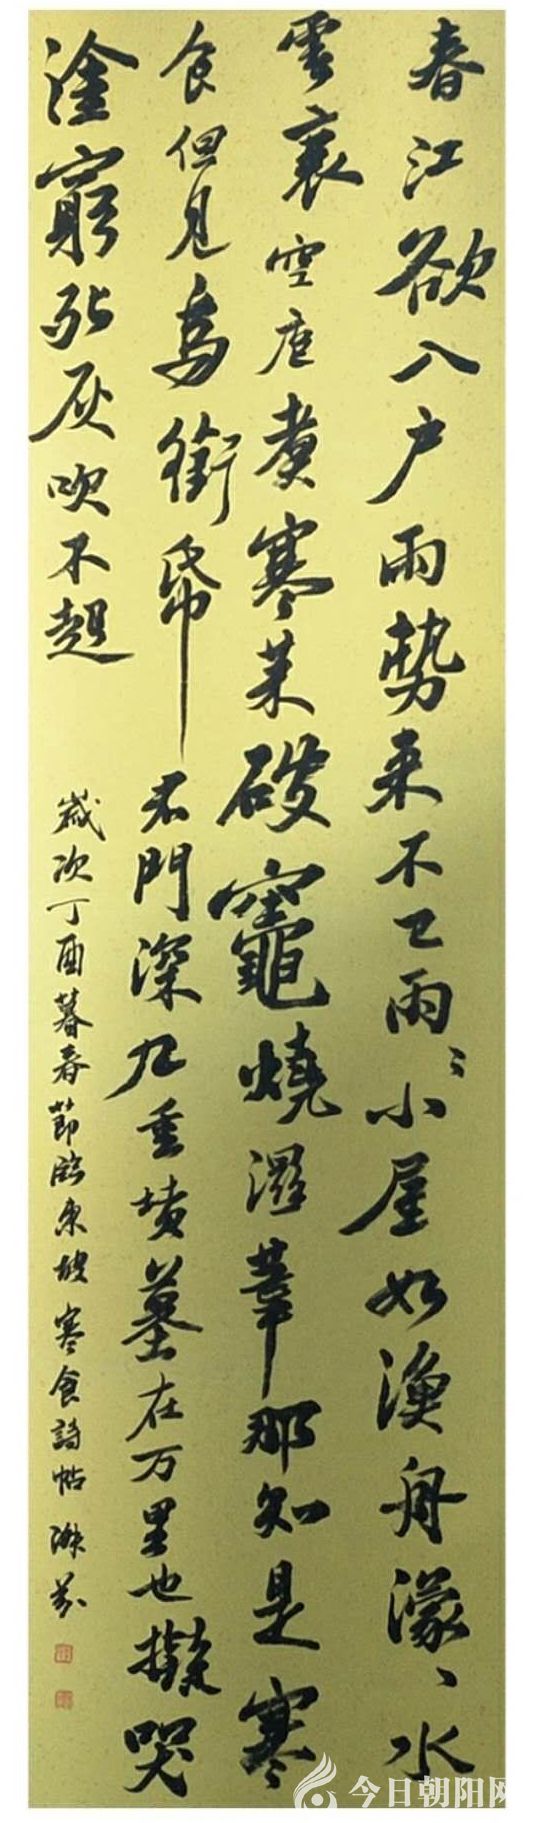 春江欲入户雨势来不已雨〻小屋如渔舟濛〻水
雲裏空庖煮寒菜破竈燒濕葦那知是寒
食但見烏銜帋君門深九重墳墓在万里也擬哭
塗窮死灰吹不起
歲次丁酉暮春節臨東坡寒食詩帖
今日朝阳网